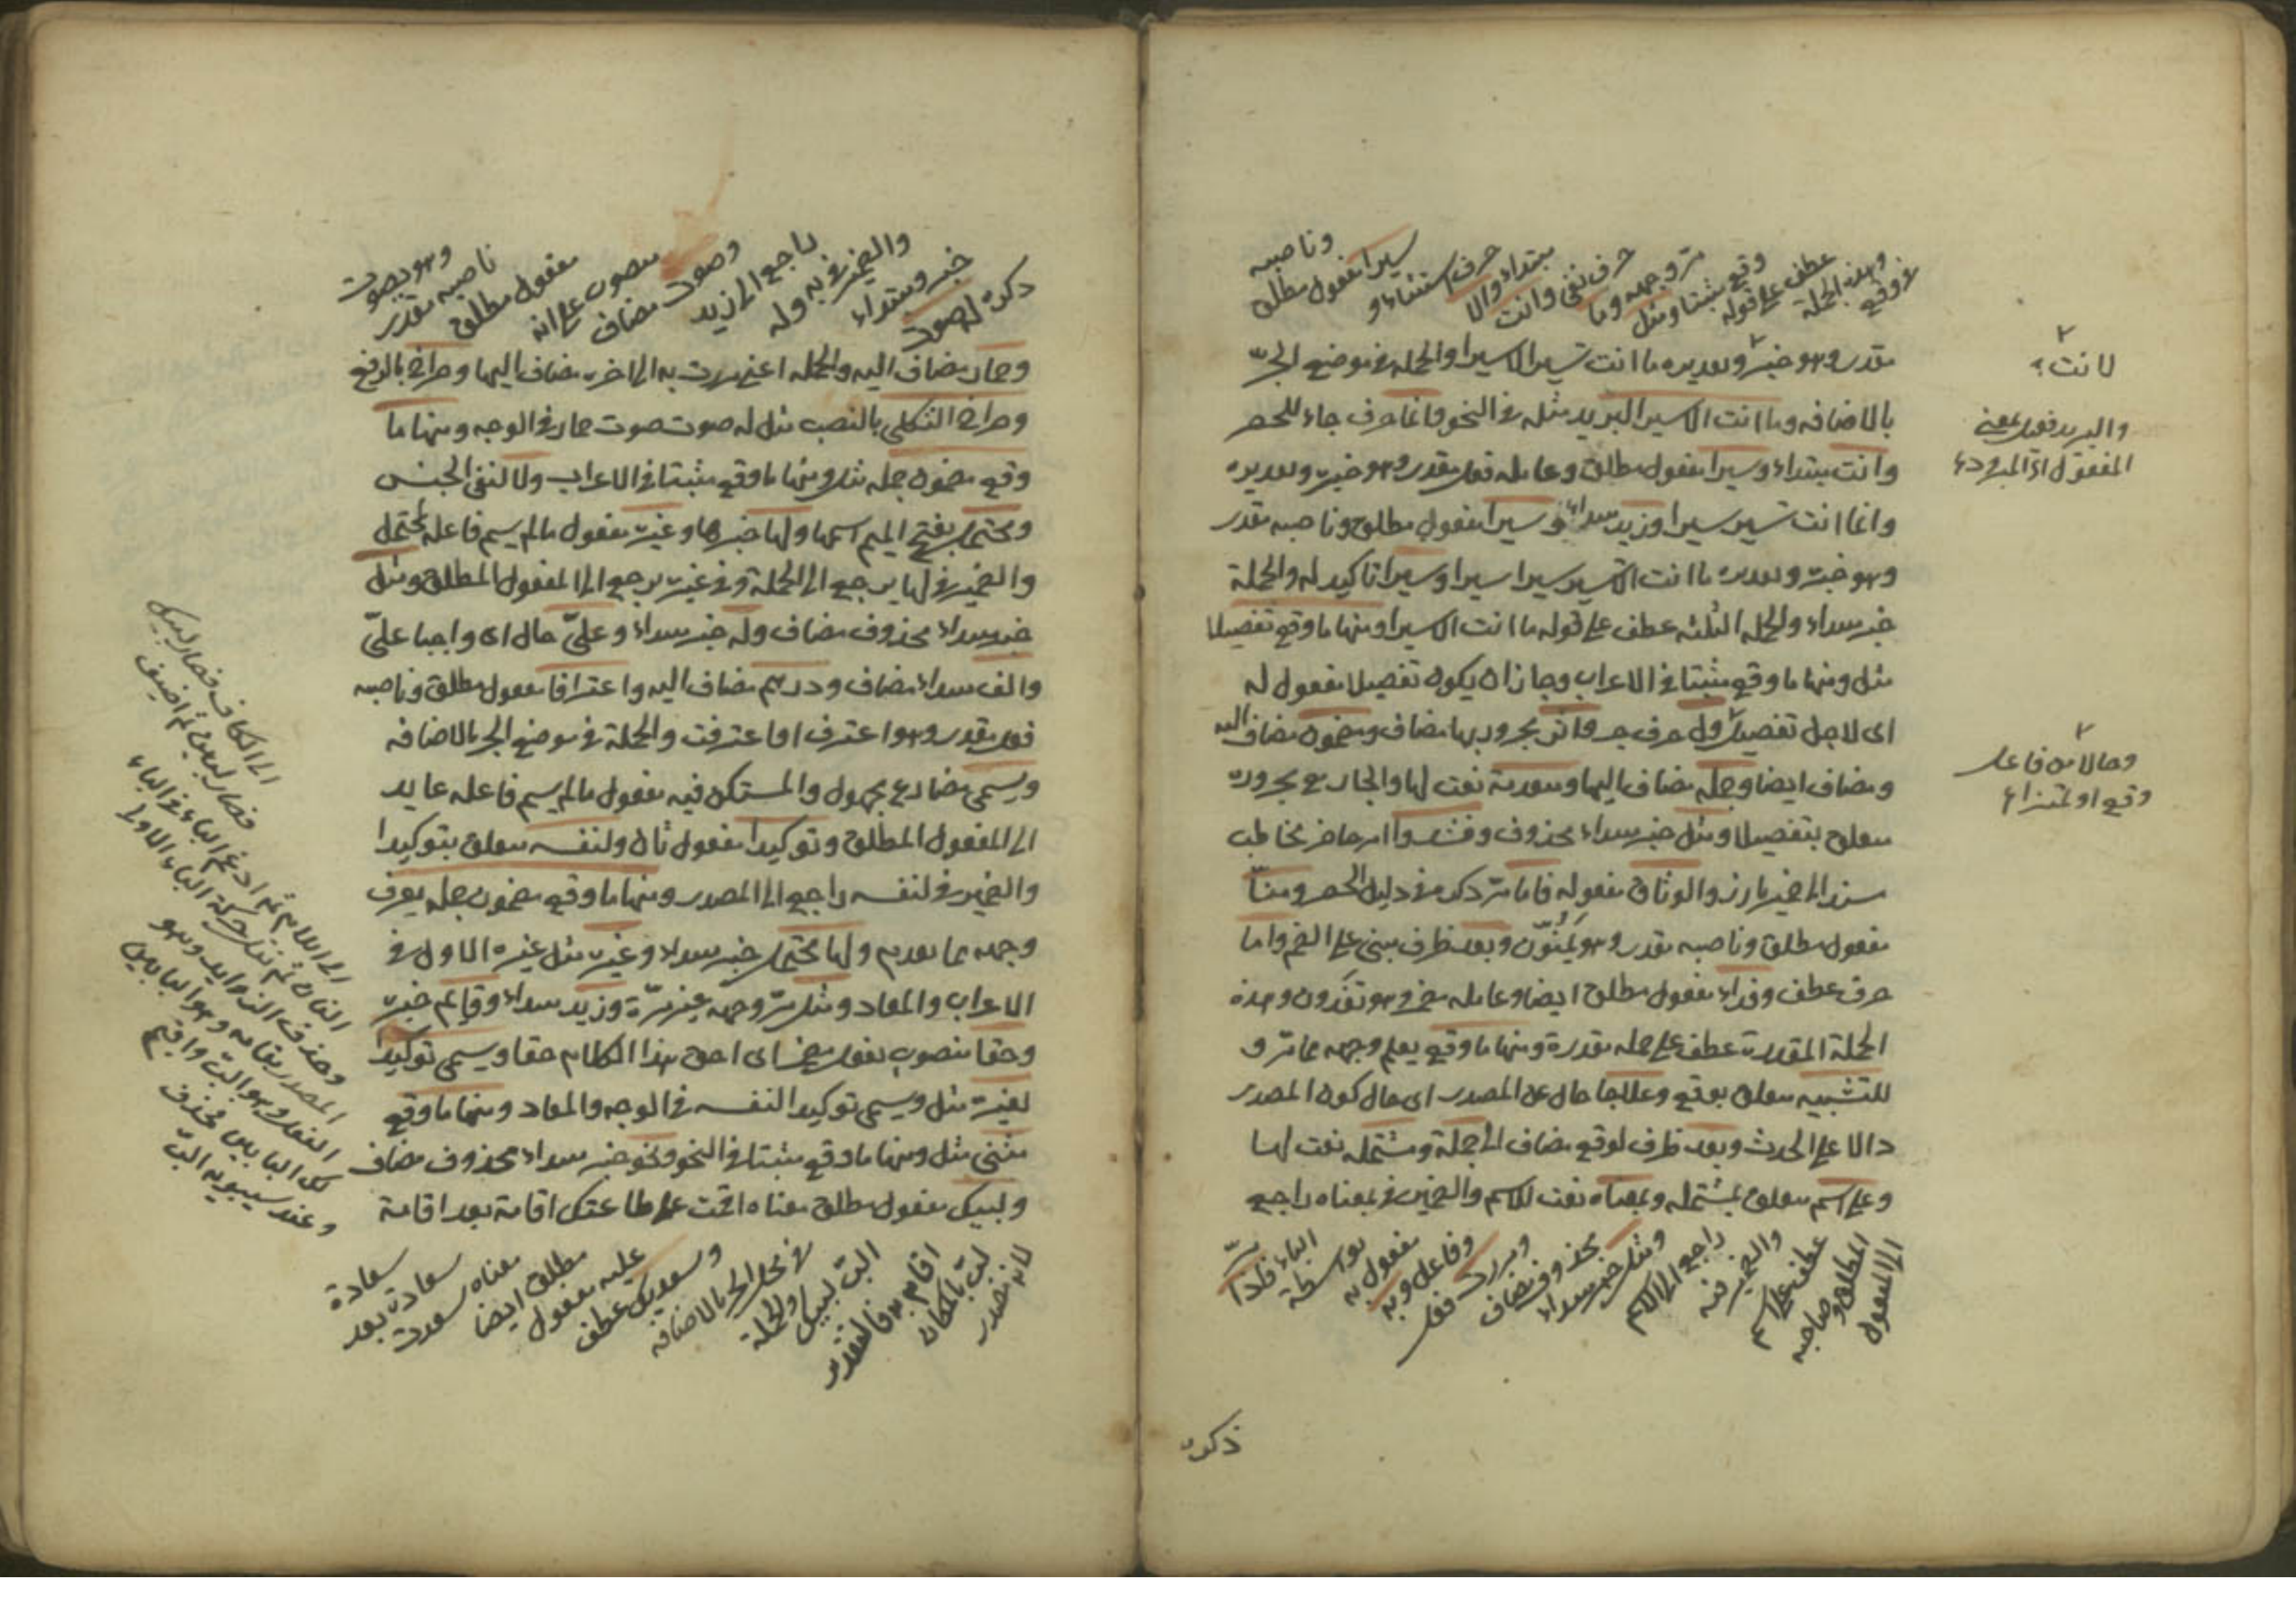 في وقع
وهذه الجملة
عطف على قوله
وقع مثبتا ومثل
مر وجهه وما
حرف نفي وانت
مبتداء والا
حرف استثناء و
سيرا مفعول مطلق
وناصبه
مقدر وهو خبره وتقديره ما انت تسير الا سيرا والجملة في موضع الجر
بالاضافه وما انت الا سير البريد مثله في النحو وانما حرف جاء للحصر
وانت مبتداء وسيرا مفعول مطلق وعامله فعل مقدر وهو خبره وتقديره
وانما انت تسير سيرا وزيد مبتداء وسيرا مفعول مطلق وناصبه مقدر
وهو خبره وتقديره ما انت الا تسير سيرا سيرا وسيرا تاكيد له والجملة
خبر مبتداء والجمله الثلثه عطف على قوله ما انت الا سيرا ومنها ما وقع تفصيلا
مثل ومنها ما وقع مثبتا في الاعراب وجاز ان يكون تفصيلا مفعول له
اى لاجل تفصيل ول حرف جر واثر مجرور بها مضاف ومضمون مضاف اليه
ومضاف ايضا وجملة مضاف اليها ومتقدمة نعت لها والجار مع مجروره
متعلق بتفصيلا ومثل خبر مبتداء محذوف وفشدوا امر حاضر مخاطب
مسند الى ضمير بارز والوثاق مفعوله فاما مر ذكره في دليل الحصر ومنّا
مفعول مطلق وناصبه مقدر وهو تمنّون وبعد ظرف مبنى على الضم واما
حرف عطف وفداء مفعول مطلق ايضا وعامله مضمر وهو تفدون وهذه
الجملة المقدرة عطف على جمله مقدرة ومنها ما وقع يعلم وجهه مما مر و
للتشبيه متعلق بوقع وعلاجا حال عن المصدر اى حال كون المصدر
دالا على الحدث وبعد ظرف لوقع مضاف الى جملة ومشتمله نعت لها
وعلى اسم متعلق بمشتمله وبمعناه نعت للاسم والضمير في بمعناه راجع
الى المفعول
المطلق وصاحبه
عطف على اسم
والضمير فيه
راجع الى الاسم
ومثل خبر مبتداء
محذوف مضاف
ومررت فعل
وفاعل وبه
مفعول به
بواسطة
الباء فاذا
مرّ
ذكره
لا انت
والبريد فعيل بمعنى
المفعول
وحالا من فاعل
وقع او تمييزا
ذكره له صوت
خبر ومبتداء
والضمير في به وله
راجع الى زيد
وصوت مضاف
منصوب على انه
مفعول مطلق
ناصبه مقدر
وهو يصوت
وحمار مضاف اليه والجمله اعني مررت به الى اخره مضاف اليها وصراخ بالرفع
وصراخ الثكلى بالنصب مثل له صوت صوت حمار في الوجه ومنها ما
وقع مضمون جمله مثل ومنها ما وقع مثبتا في الاعراب ولا لنفى الجنس
ومحتمل بفتح الميم اسمها ولها خبرها وغيره مفعول ما لم يسم فاعله لمحتمل
والضمير في لها يرجع الى الجملة وفي غيره يرجع الى المفعول المطلق ومثل
خبر مبتداء محذوف مضاف وله خبر مبتداء وعليّ حال اى واجبا عليّ
والف مبتداء مضاف ودرهم مضاف اليه واعترافا مفعول مطلق وناصبه
فعل مقدر وهو اعترف او اعترفت والجملة في موضع الجر بالاضافه
ويسمى مضارع مجهول والمستكن فيه مفعول ما لم يسم فاعله عايد
الى المفعول المطلق وتوكيدا مفعول ثان ولنفسه متعلق بتوكيدا
والضمير في لنفسه راجع الى المصدر ومنها ما وقع مضمون جمله يعرف
وجهه مما تقدم ولها محتمل خبر مبتداء وغيره مثل غيره الاول في
الاعراب والمعاد ومثل مر وجهه غير مرة وزيد مبتداء وقايم خبره
وحقا منصوب بفعل مضمر اى احق هذا الكلام حقا ويسمى توكيدا
لغيره مثل ويسمى توكيدا لنفسه في الوجه والمعاد ومنها ما وقع
مثنى مثل ومنها ما وقع مثبتا في النحو ونحو خبر مبتداء محذوف مضاف
ولبيك مفعول مطلق معناه اقمت على طاعتك اقامة بعد اقامة
لانه مصدر
لبّ بالمكان
اقام به فالتقدير
البّ لبيك
والجملة
في محل الجر بالاضافه
وسعديك عطف
عليه مفعول
مطلق ايضا
معناه سعدت
سعادة بعد
سعادة
الى اللام ثم ادغم الباء في الباء
ثم نقل حركة الباء الاولى
وحذف الزوايد وهو
المصدر مقامه وهو البابين
الفعل وهو البّ واقيم
لك البابين فحذف
وعند سيبويه البّ
فصار لبين ثم اضيف
الى الكاف فصار لبيك